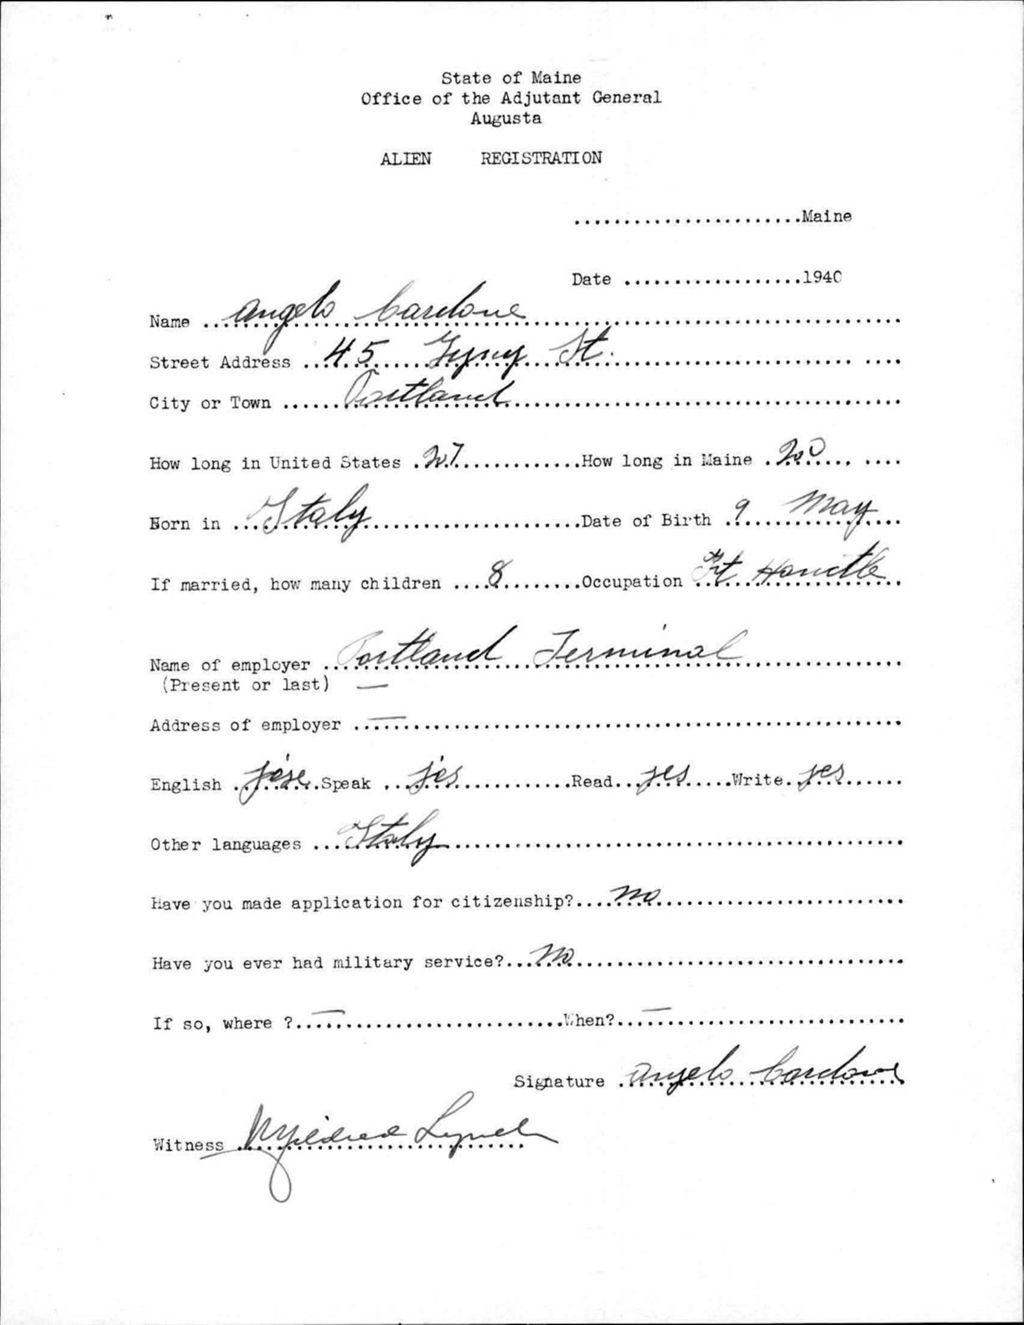 State of Maine
Office of the Adjutant General
Augusta
ALIEN REGISTRATION
.......................Maine
Date ..................1940
Name Angelo Cardone
Street Address 45 St.
City or Town Portland
How long in United States 27 How long in Maine 20
Born in Italy Date of Birth 9 May
If married, how many children 8 Occupation Frt
Name of employer Portland Terminal
(Present or last) —
Address of employer —
English Speak yes Read yes Write yes
Other languages Italy
Have you made application for citizenship? no
Have you ever had military service? No
If so, where ? — When? —
Signature Angelo Cardone
Witness Mildred Lynch